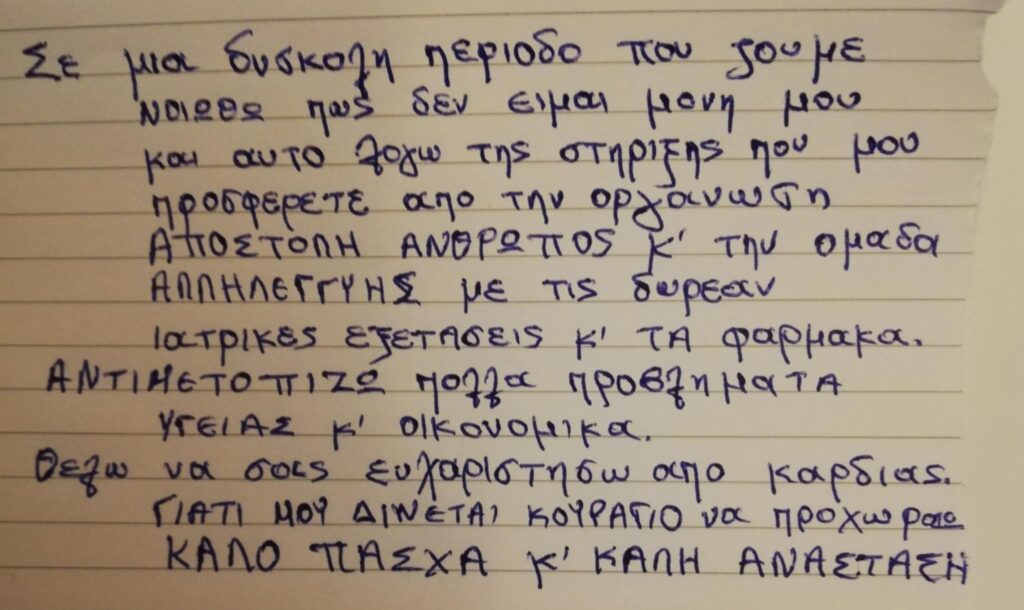 Σε μια δυσκολη περιοδο που ζουμε
νοιωθω πως δεν ειμαι μονη μου
και αυτο λογω της στηριξης που μου
προσφερετε απο την οργανωση
ΑΠΟΣΤΟΛΗ ΑΝΘΡΩΠΟΣ κ' την ομαδα
ΑΛΛΗΛΕΓΓΥΗΣ με τις δωρεαν
Ιατρικες εξετασεις κ' ΤΑ φαρμακα.
ΑΝΤΙΜΕΤΟΠΙΖΩ πολλα προβληματα
ΥΓΕΙΑΣ κ' οικονομικα.
Θελω να σας ευχαριστησω απο καρδιας.
ΓΙΑΤΙ ΜΟΥ ΔΙΝΕΤΑΙ ΚΟΥΡΑΓΙΟ να προχωραω
ΚΑΛΟ ΠΑΣΧΑ κ' ΚΑΛΗ ΑΝΑΣΤΑΣΗ